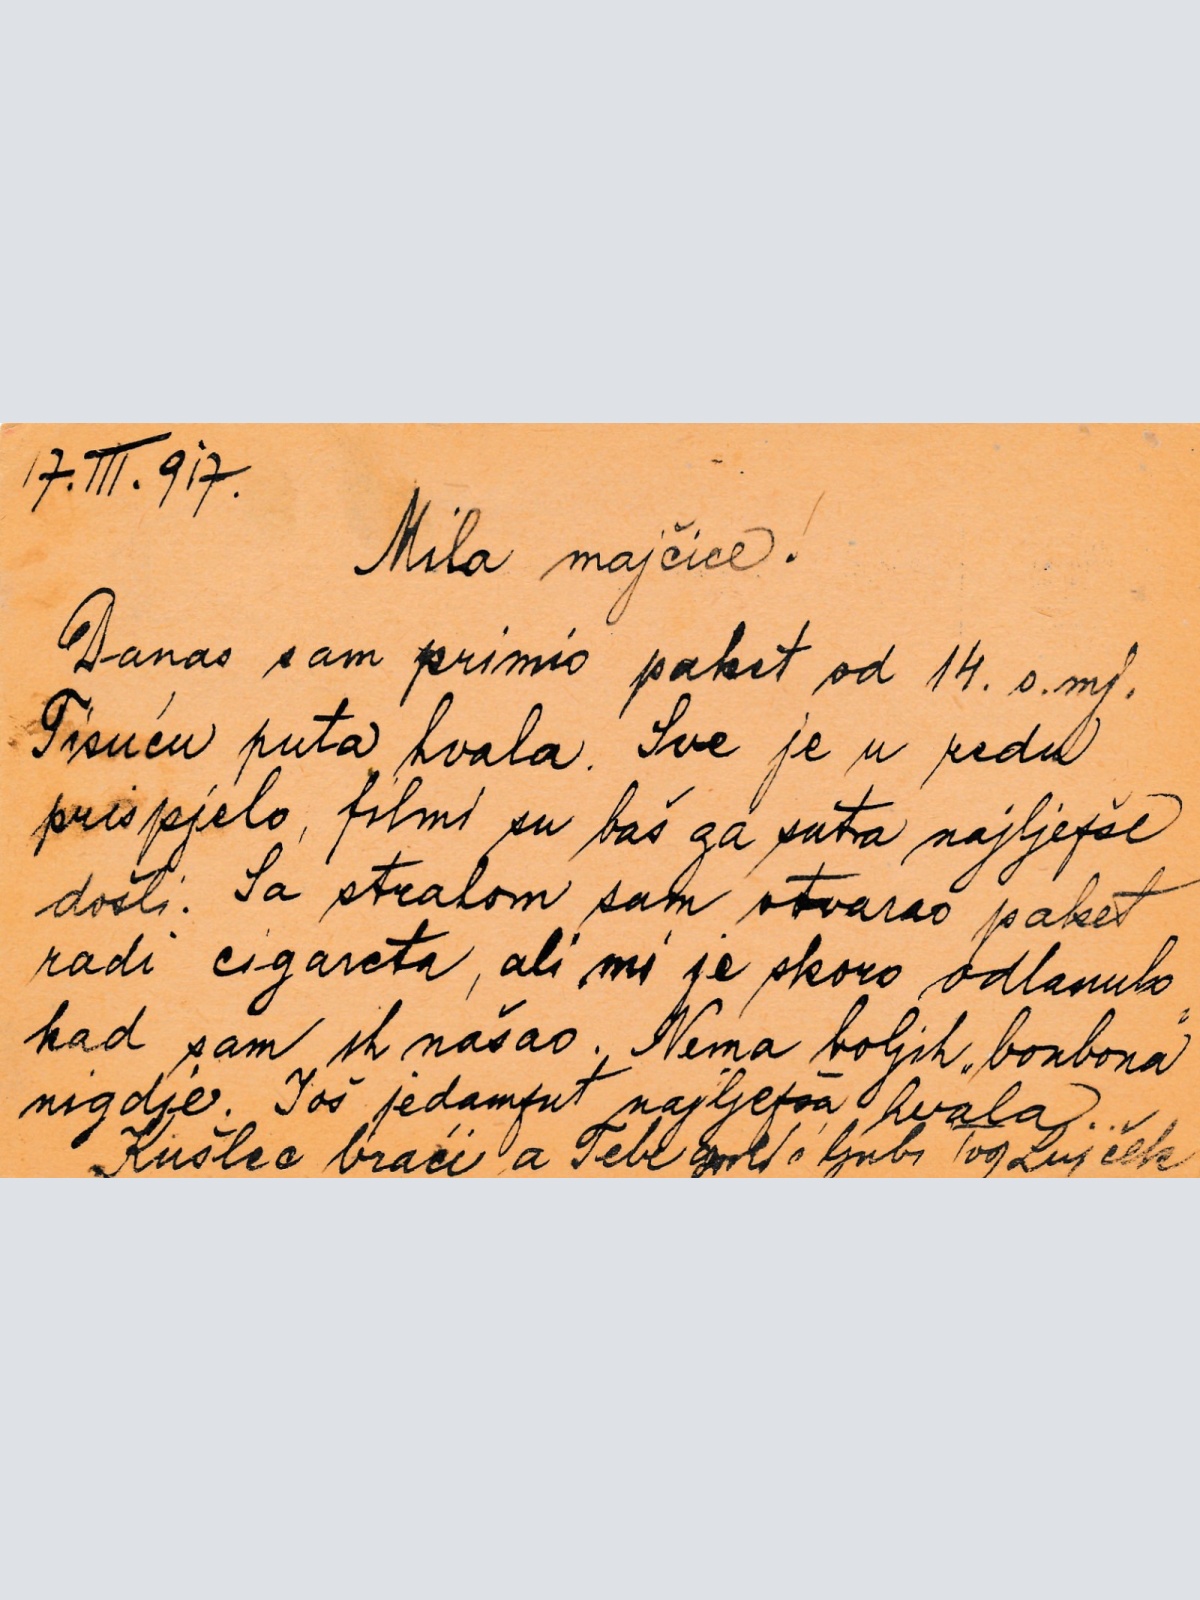 17.III.917.
Mila majčice!
Danas sam primio paket od 14. o.mj.
Tisuću puta hvala. Sve je u redu
prispjelo, filmi su baš za sutra najljepše
došli. Sa strahom sam otvarao paket
radi cigareta, ali mi je skoro odlanulo
kad sam ih našao. Nema boljih „bonbona"
nigdje. Još jedamput najljepša hvala.
Kušlec braći a Tebe ljubi Tvoj